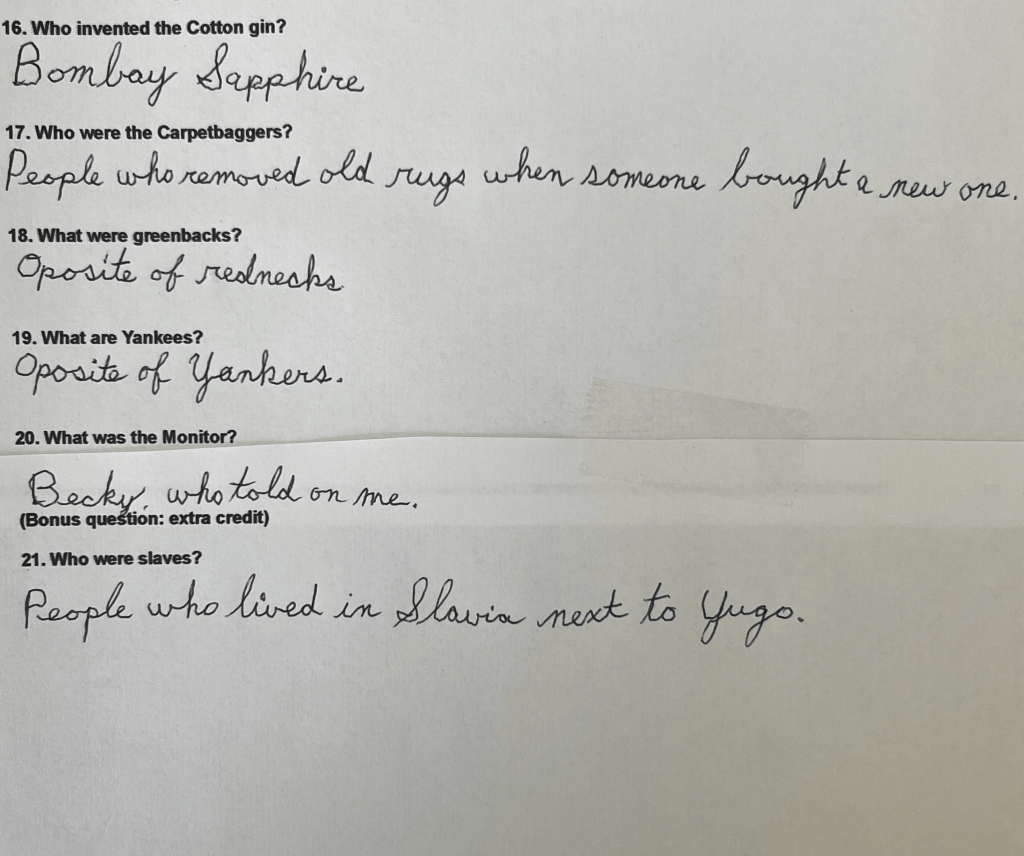 16. Who invented the Cotton gin?
Bombay Sapphire
17. Who were the Carpetbaggers?
People who removed old rugs when someone bought a new one.
18. What were greenbacks?
Oposite of rednecks
19. What are Yankees?
Oposite of Yankers.
20. What was the Monitor?
Becky, who told on me.
(Bonus question: extra credit)
21. Who were slaves?
People who lived in Slavia next to Yugo.